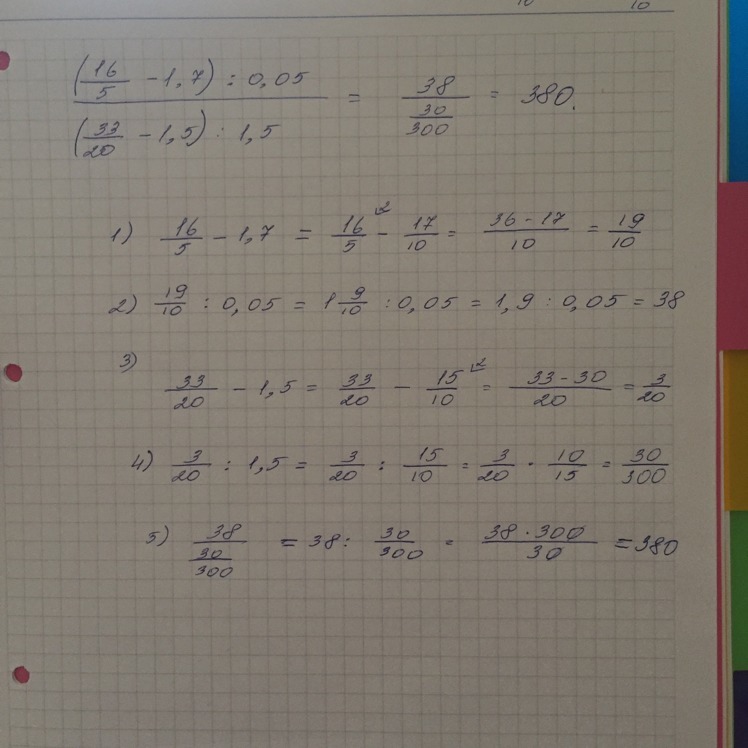 10 10
((16/5 - 1,7) : 0,05) / ((33/20 - 1,5) : 1,5) = 38/(30/300) = 380.
1) 16/5 - 1,7 = 16/5 ²- 17/10 = (36 - 17)/10 = 19/10
2) 19/10 : 0,05 = 1 9/10 : 0,05 = 1,9 : 0,05 = 38
3) 33/20 - 1,5 = 33/20 - 15/10 ² = (33 - 30)/20 = 3/20
4) 3/20 : 1,5 = 3/20 : 15/10 = 3/20 · 10/15 = 30/300
5) 38/(30/300) = 38 : 30/300 = (38 · 300)/30 = 380